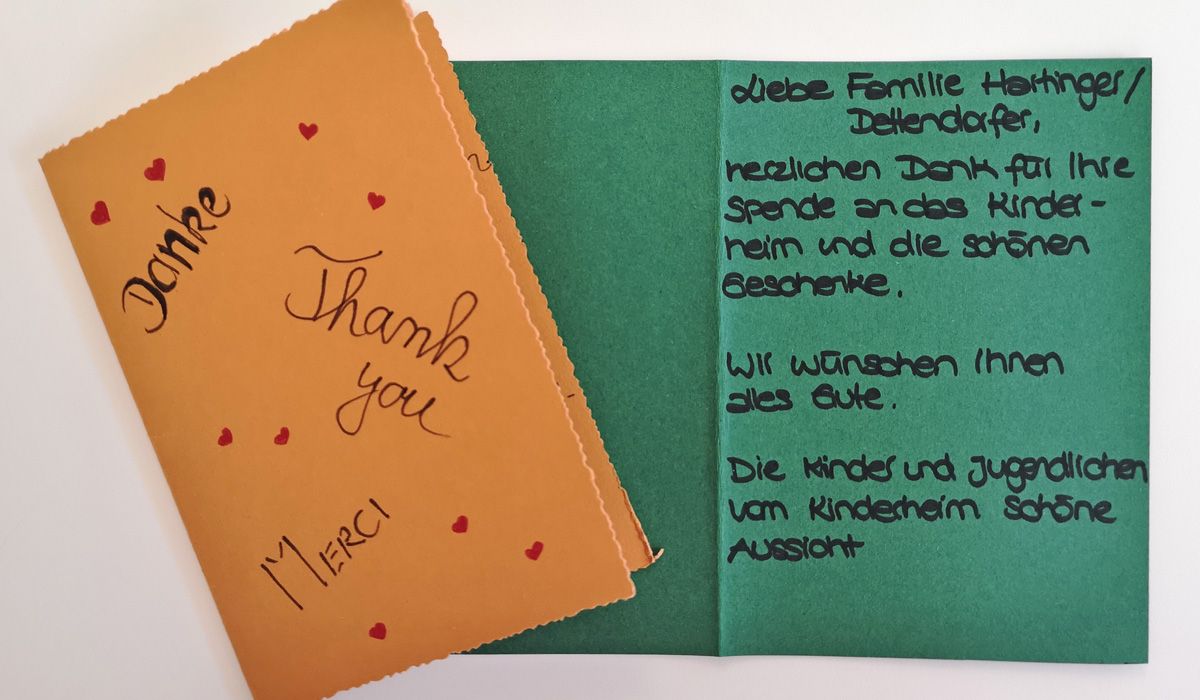 Danke
Thank
you
MERCI
Liebe Familie Hartinger/
Dettendorfer,
herzlichen Dank für Ihre
Spende an das Kinder-
heim und die schönen
Geschenke.
Wir wünschen Ihnen
alles Gute.
Die Kinder und Jugendlichen
vom Kinderheim Schöne
Aussicht